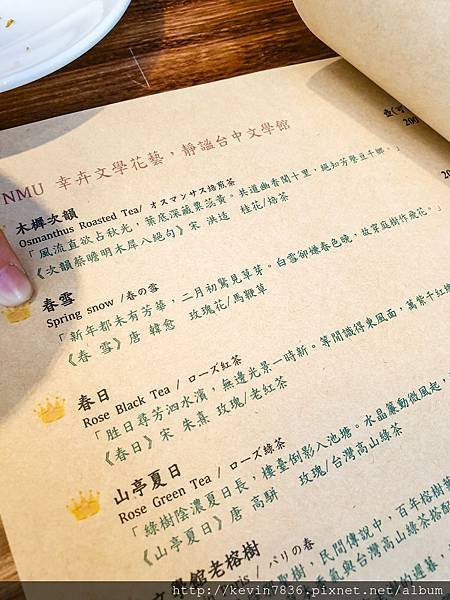 壺(可
NMU 幸卉文學花藝，靜謐台中文學館
200
木樨次韻
Osmanthus Roasted Tea/ オスマンサス焙煎茶
「風流直欲占秋光，葉底深藏粟蕊黃。共道幽香聞十里，絕知芳譽亘千鄉。」
《次韻蔡瞻明木犀八絕句》宋 洪适 桂花/焙茶
20
春雪
Spring snow /春の雪
「新年都未有芳華，二月初驚見草芽。白雪卻嫌春色晚，故穿庭樹作飛花。」
《春 雪》唐 韓愈 玫瑰花/馬鞭草
春日
Rose Black Tea / ローズ紅茶
「勝日尋芳泗水濱，無邊光景一時新。等閒識得東風面，萬紫千紅總
《春日》宋 朱熹 玫瑰/老紅茶
山亭夏日
Rose Green Tea / ローズ綠茶
「綠樹陰濃夏日長，樓臺倒影入池塘。水晶簾動微風起，
《山亭夏日》唐 高駢 玫瑰/台灣高山綠茶
文學館老榕樹
is / パリの春
聖樹，民間傳說中，百年榕樹
香氣與台灣高山綠茶搭配
的遲暮，
http://kevin7836.pixnet.net/album